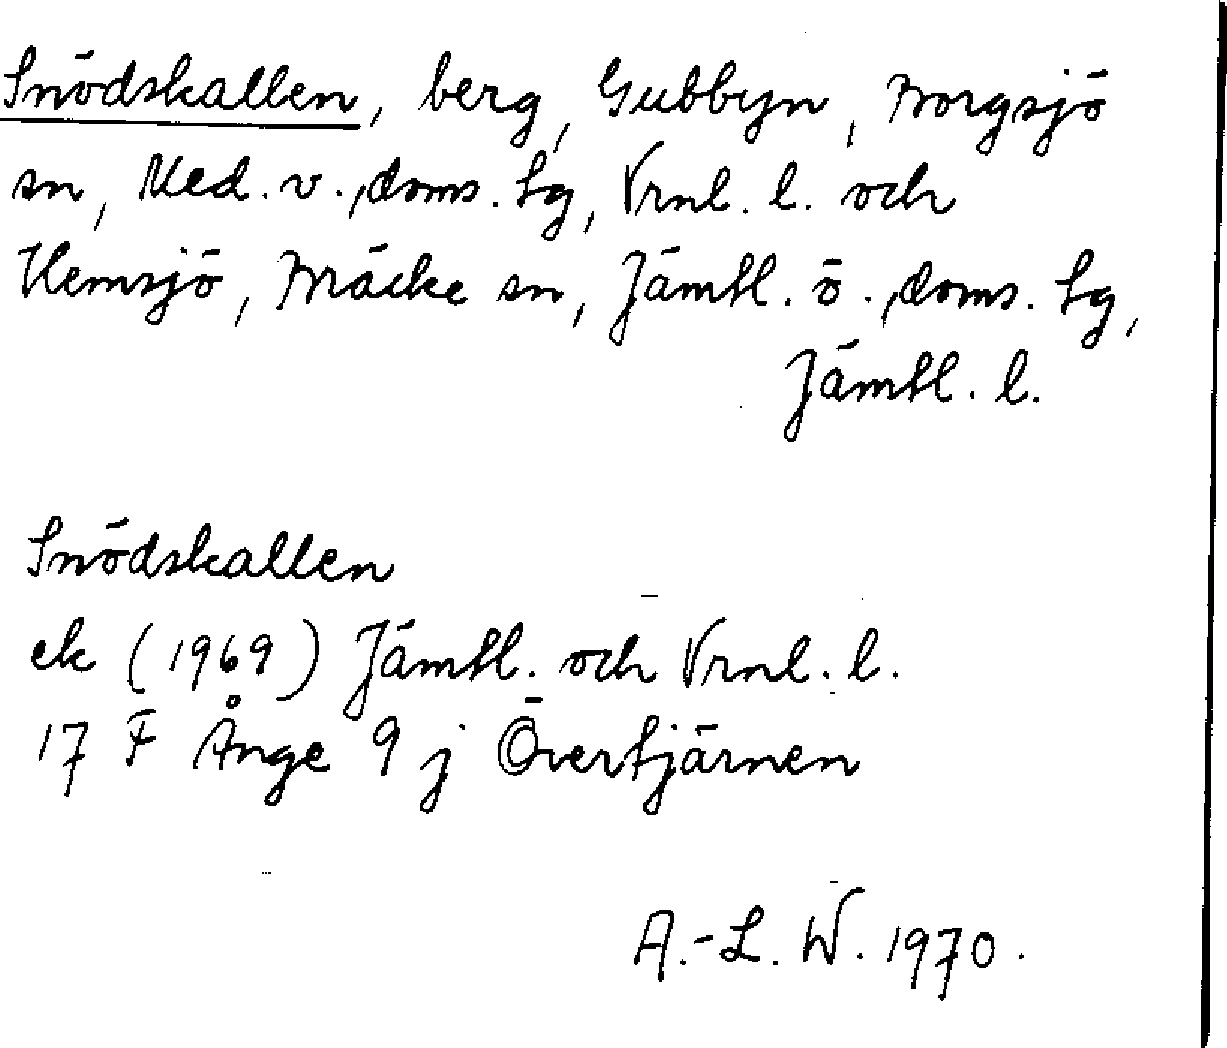 Snödskallen, berg, Gubbyn, Borgsjö
sn, Med. v., doms. tg, Vrnl. l. och
Hemsjö, Bräcke sn, Jämtl. ö., doms. tg,
Jämtl. l.
Snödskallen
ek (1969) Jämtl. och Vrnl. l.
17 F Ånge 9 j Övertjärnen
A.-L. W. 1970.